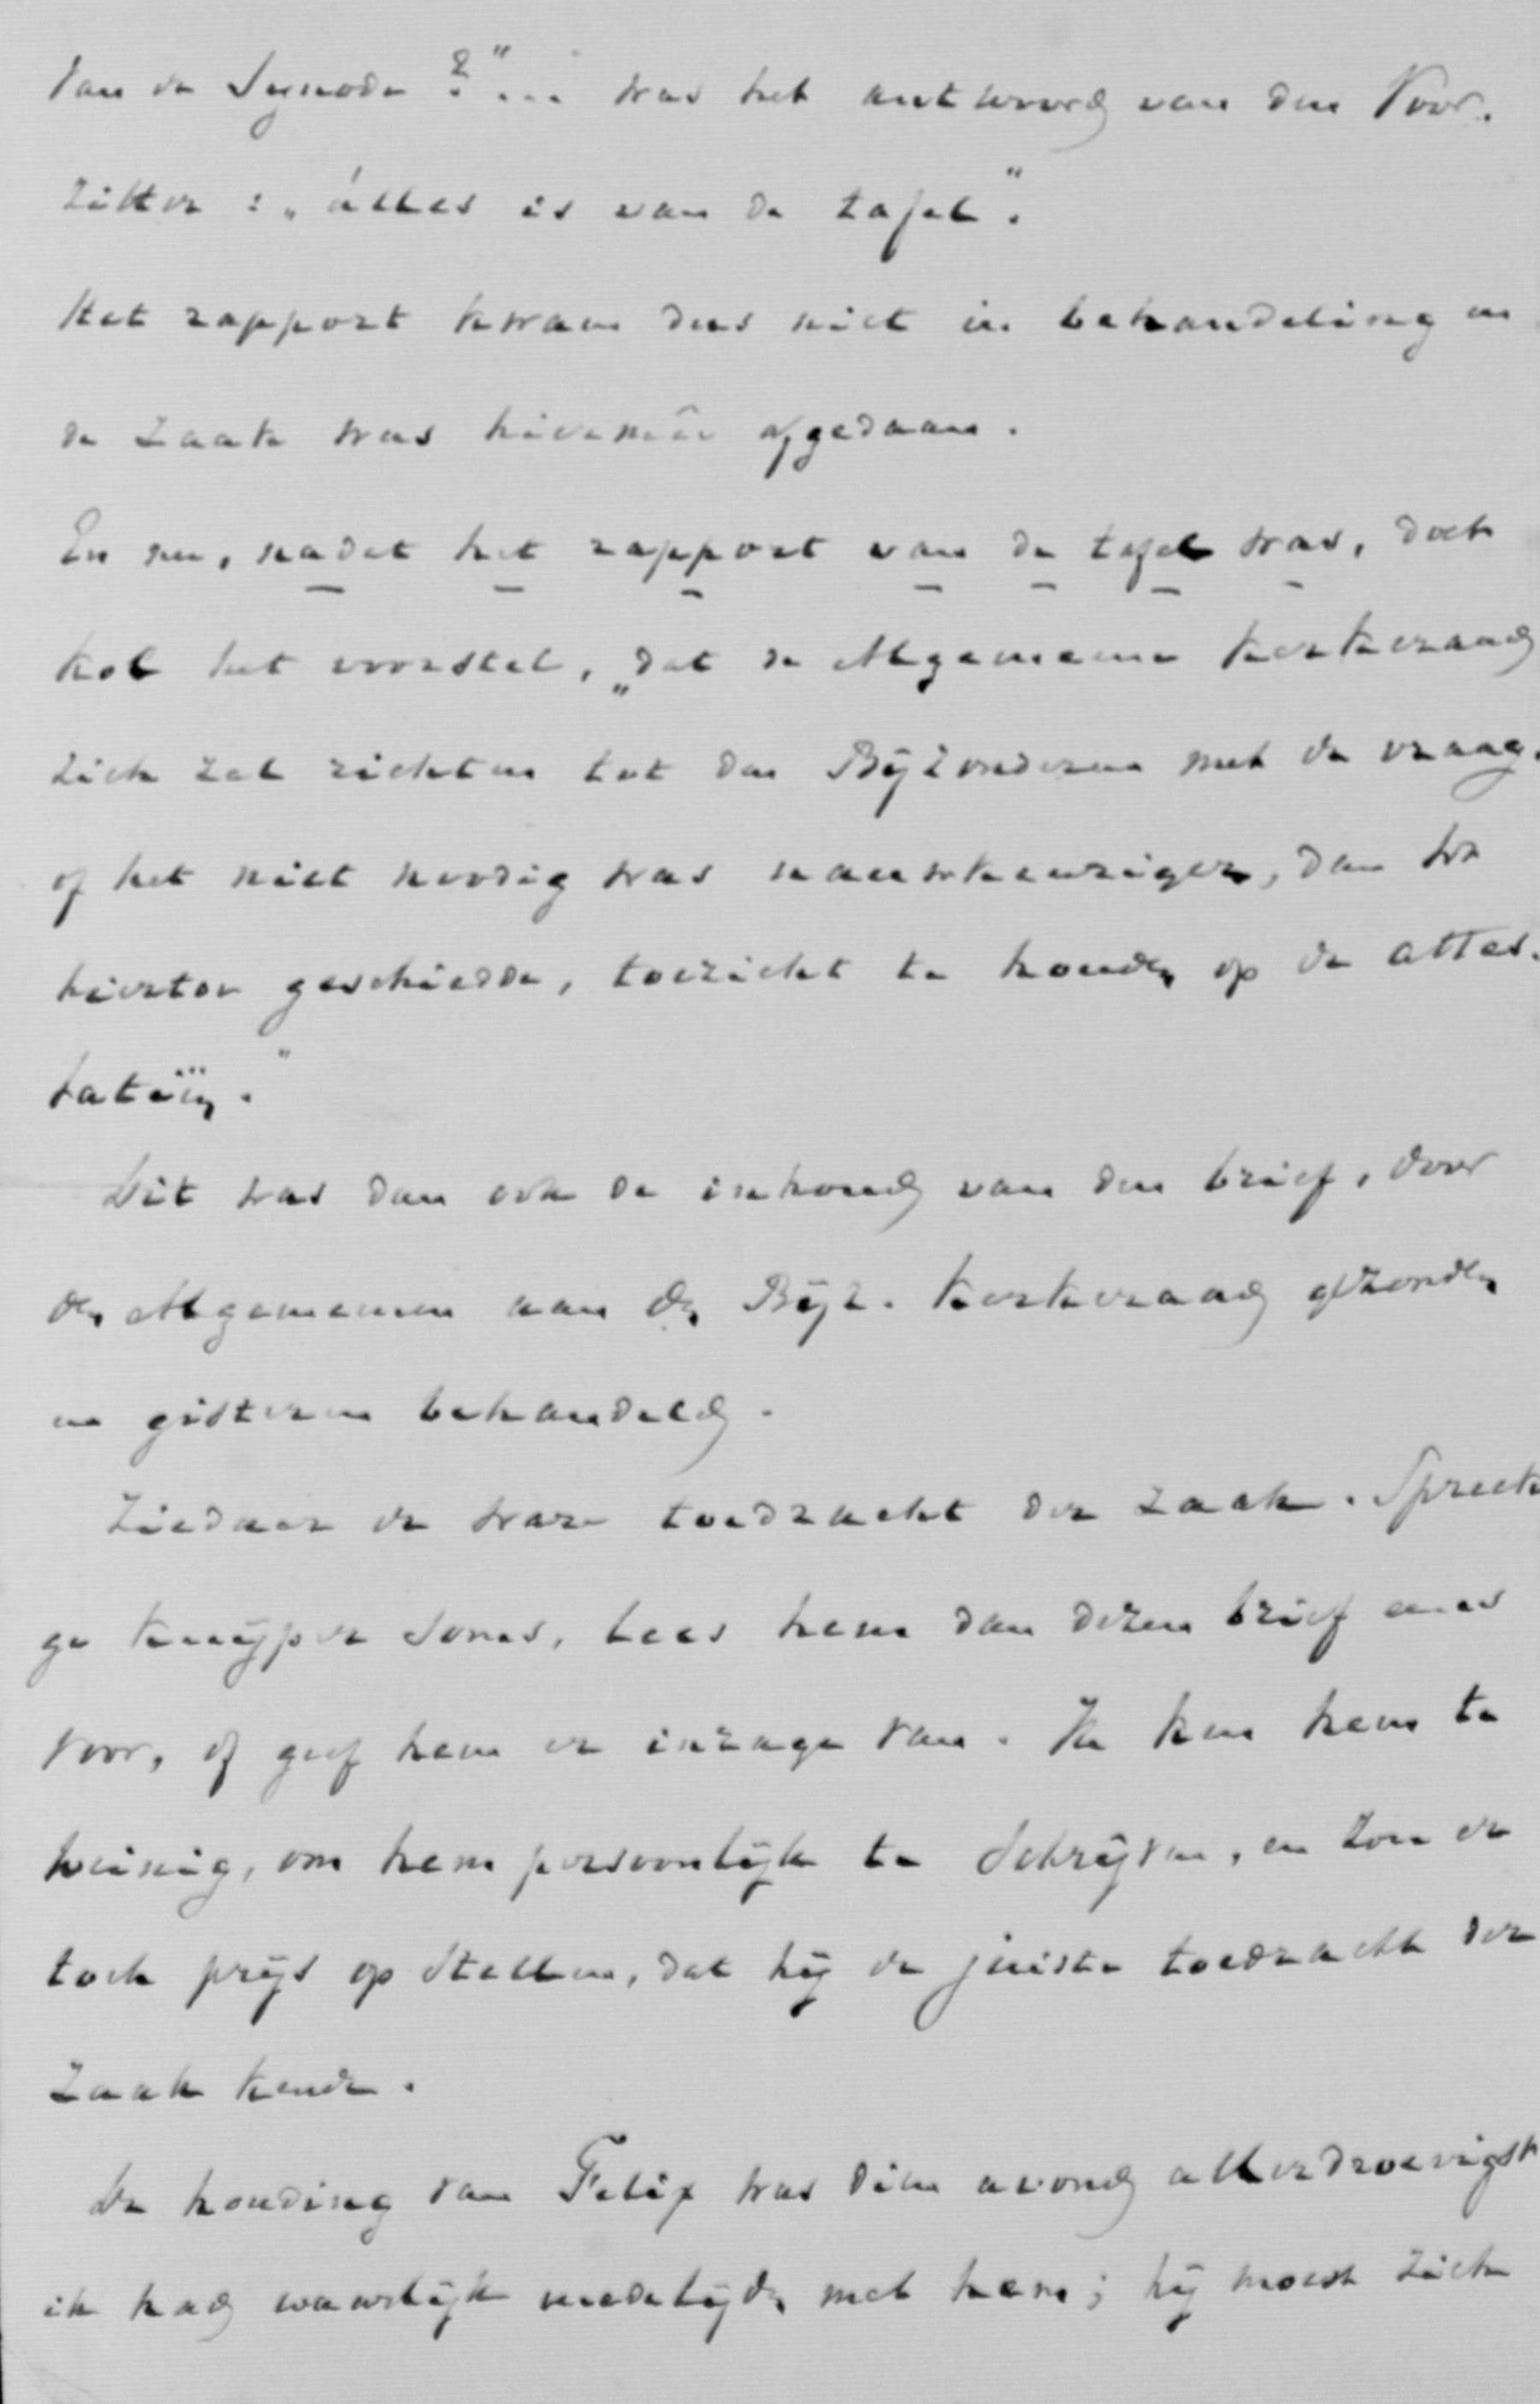 van de Synode?" ... was het antwoord van den Voor-
zitter: „álles is van de tafel".
Het rapport kwam dus niet in behandeling en
de zaak was hiermêe afgedaan.
En nu, nadat het rapport van de tafel was, doet
Kol het voorstel, „dat de Algemeene Kerkeraad
zich zal richten tot den Byzonderen met de vraag.
of het niet noodig was nauwkeuriger, dan tot
hiertoe geschiedde, toezicht te houden op de attes-
tatiën."
Dit was dan ook de inhoud van den brief, door
den Algemeenen aan den Byz. Kerkeraad gezonden
en gisteren behandeld.
Ziedaar de ware toedracht der zaak. Spreek
ge Kuyper soms, lees hem dan dezen brief eens
voor, of geef hem er inzage van. Ik ken hem te
weinig, om hem persoonlijk te schrijven, en zou er
toch prijs op stellen, dat hij de juiste toedracht der
zaak kende.
De houding van Felix was dien avond allerdroevigst
ik had waarlijk medelijden met hem; hij moest zich